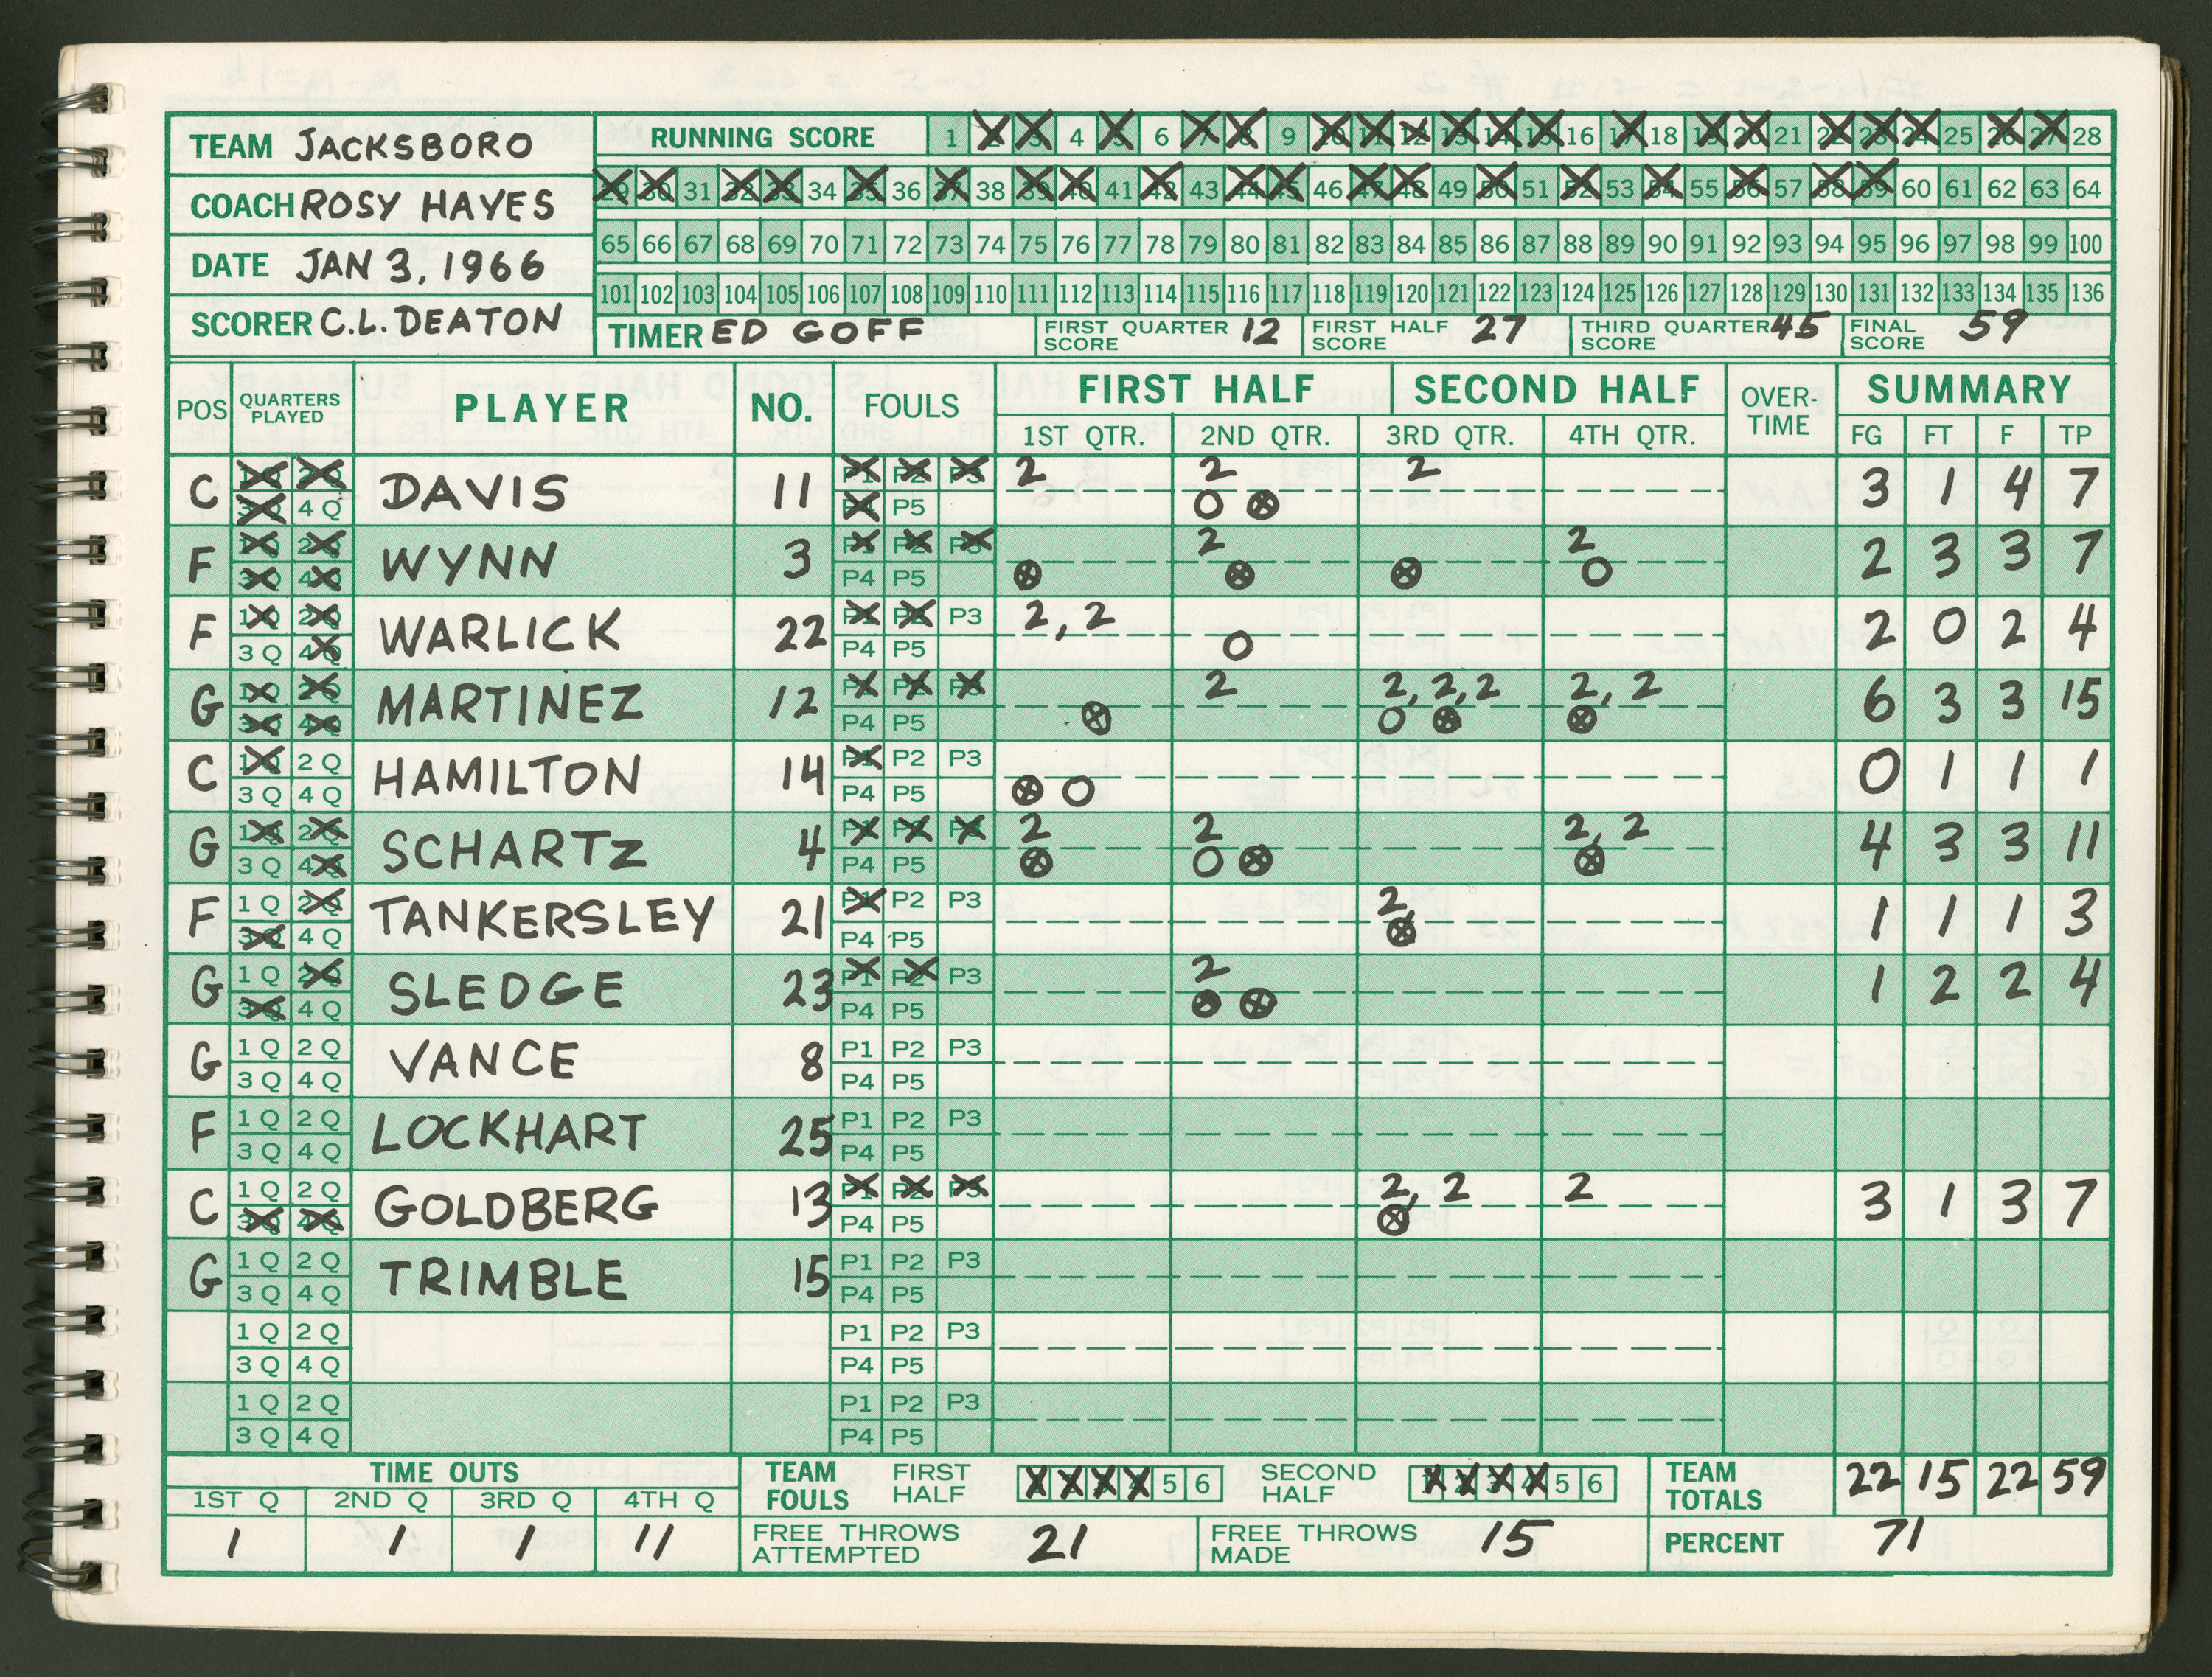 TEAM JACKSBORO
RUNNING SCORE 1 2 3 4 5 6 7 8 9 10 11 12 13 14 15 16 17 18 19 20 21 22 23 24 25 26 27 28
COACH ROSY HAYES
29 30 31 32 33 34 35 36 37 38 39 40 41 42 43 44 45 46 47 48 49 50 51 52 53 54 55 56 57 58 59 60 61 62 63 64
65 66 67 68 69 70 71 72 73 74 75 76 77 78 79 80 81 82 83 84 85 86 87 88 89 90 91 92 93 94 95 96 97 98 99 100
DATE JAN 3, 1966
101 102 103 104 105 106 107 108 109 110 111 112 113 114 115 116 117 118 119 120 121 122 123 124 125 126 127 128 129 130 131 132 133 134 135 136
SCORER C.L. DEATON
TIMER ED GOFF
FIRST QUARTER SCORE 12
FIRST HALF SCORE 27
THIRD QUARTER SCORE 45
FINAL SCORE 59
POS QUARTERS PLAYED PLAYER NO. FOULS FIRST HALF SECOND HALF OVER-TIME SUMMARY
1ST QTR. 2ND QTR. 3RD QTR. 4TH QTR. FG FT F TP
C 1Q 2Q DAVIS 11 P1 P2 P3 2 2 2 3 1 4 7
3Q 4Q P4 P5 O ⊗
F 1Q 2Q WYNN 3 P1 P2 P3 2 2 2 3 3 7
3Q 4Q P4 P5 ⊗ ⊗ ⊗ O
F 1Q 2Q WARLICK 22 P1 P2 P3 2, 2 2 0 2 4
3Q 4Q P4 P5 O
G 1Q 2Q MARTINEZ 12 P1 P2 P3 2 2, 2, 2 2, 2 6 3 3 15
3Q 4Q P4 P5 ⊗ O ⊗ ⊗
C 1Q 2Q HAMILTON 14 P1 P2 P3 0 1 1 1
3Q 4Q P4 P5 ⊗ O
G 1Q 2Q SCHARTZ 4 P1 P2 P3 2 2 2, 2 4 3 3 11
3Q 4Q P4 P5 ⊗ O ⊗ ⊗
F 1Q 2Q TANKERSLEY 21 P1 P2 P3 2 1 1 1 3
3Q 4Q P4 P5 ⊗
G 1Q 2Q SLEDGE 23 P1 P2 P3 2 1 2 2 4
3Q 4Q P4 P5 ⊗ ⊗
G 1Q 2Q VANCE 8 P1 P2 P3
3Q 4Q P4 P5
F 1Q 2Q LOCKHART 25 P1 P2 P3
3Q 4Q P4 P5
C 1Q 2Q GOLDBERG 13 P1 P2 P3 2, 2 2 3 1 3 7
3Q 4Q P4 P5 ⊗
G 1Q 2Q TRIMBLE 15 P1 P2 P3
3Q 4Q P4 P5
1Q 2Q P1 P2 P3
3Q 4Q P4 P5
1Q 2Q P1 P2 P3
3Q 4Q P4 P5
TIME OUTS
1ST Q 2ND Q 3RD Q 4TH Q
1 1 1 11
TEAM FOULS FIRST HALF 1 2 3 4 5 6 SECOND HALF 1 2 3 4 5 6
TEAM TOTALS 22 15 22 59
FREE THROWS ATTEMPTED 21
FREE THROWS MADE 15
PERCENT 71